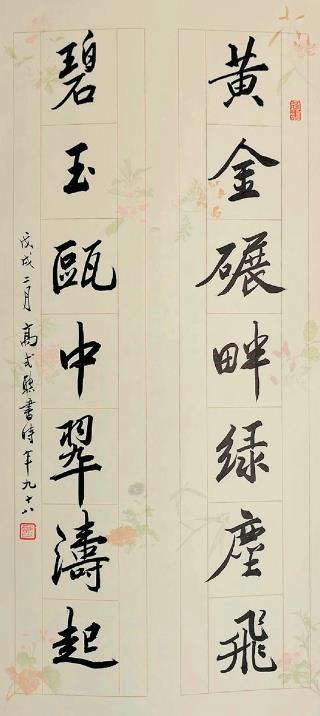 黃金碾畔綠塵飛
碧玉甌中翠濤起
戊戌二月高式熊書時年九十八